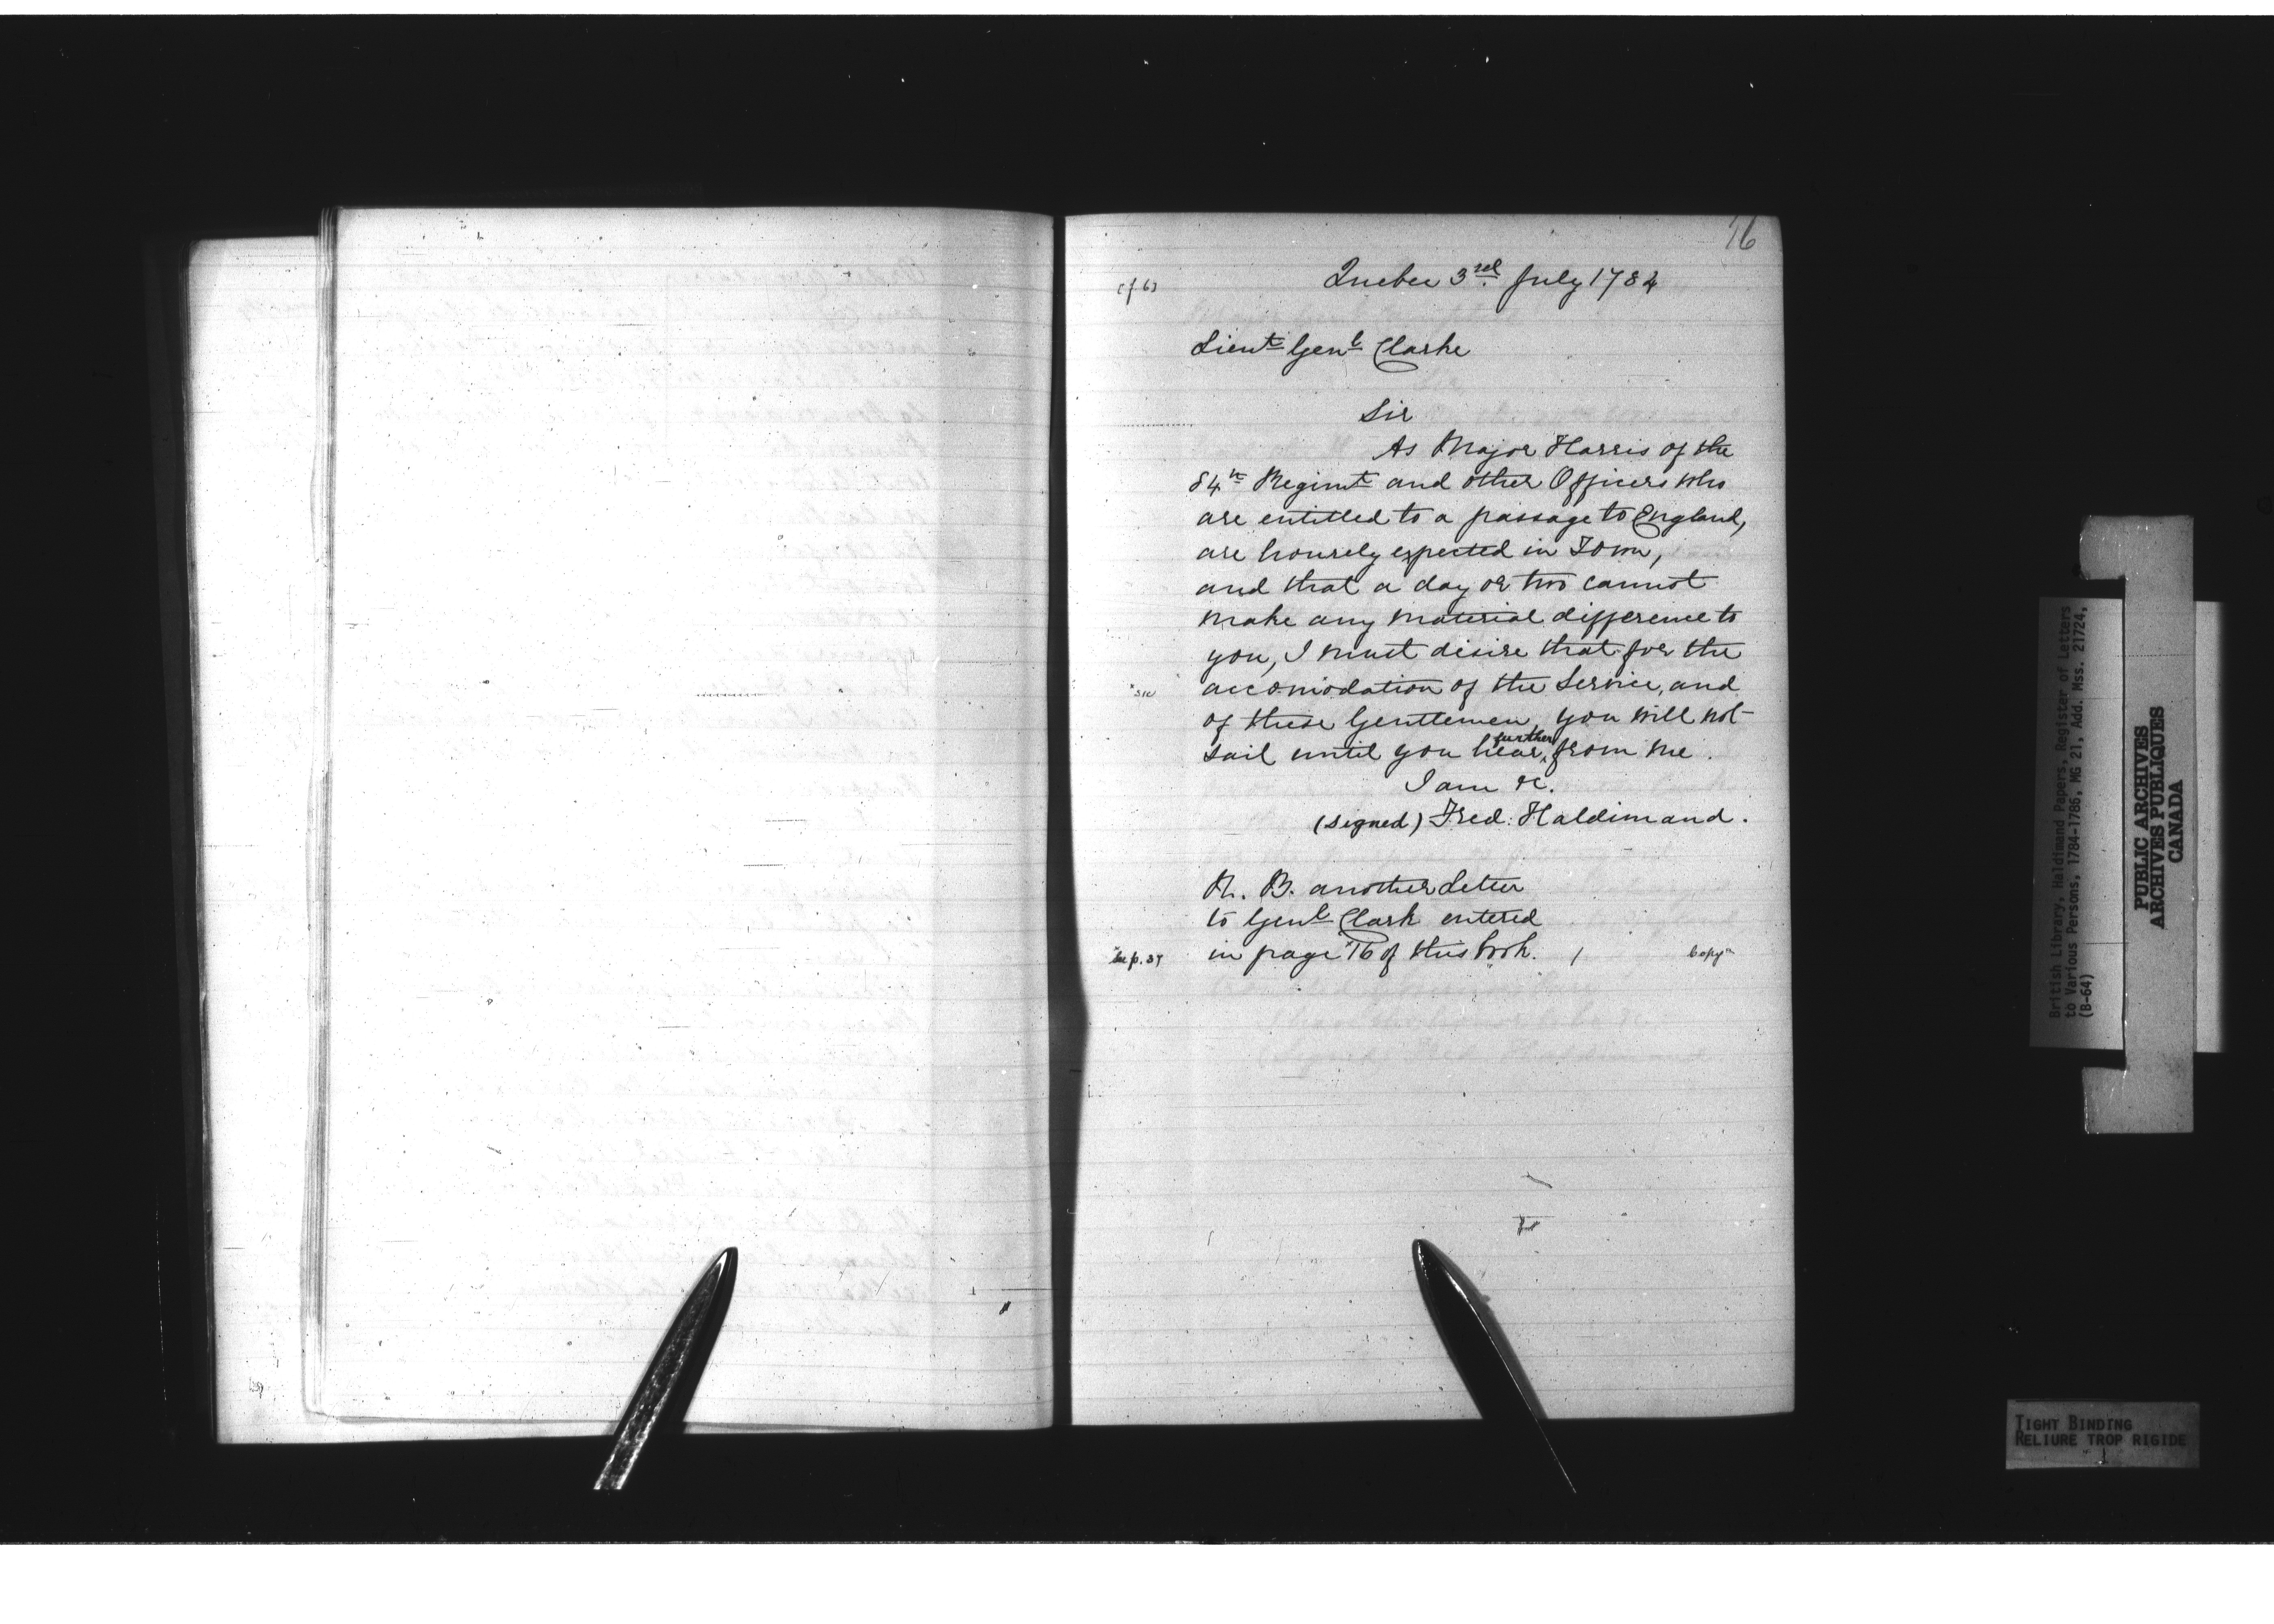 16
(f. 6)
Quebec 3rd. July 1784
Lieut Genl Clarke
Sir
As Major Harris of the
84th Regimt and other Officers who
are entitled to a passage to England,
are hourely expected in Town,
and that a day or two cannot
make any material difference to
you, I must desire that for the
"sic" accomodation of the Service, and
of these Gentlemen, you will not
sail until you hear further from me.
I am &c.
(signed) Fred: Haldimand.
N. B. another Letter
to Genl Clark entered
in page 16 of this book.
See p. 37
Copyst
British Library, Haldimand Papers, Register of Letters
to Various Persons, 1784-1786, MG 21, Add. Mss. 21724,
(B-64)
PUBLIC ARCHIVES
ARCHIVES PUBLIQUES
CANADA
TIGHT BINDING
RELIURE TROP RIGIDE